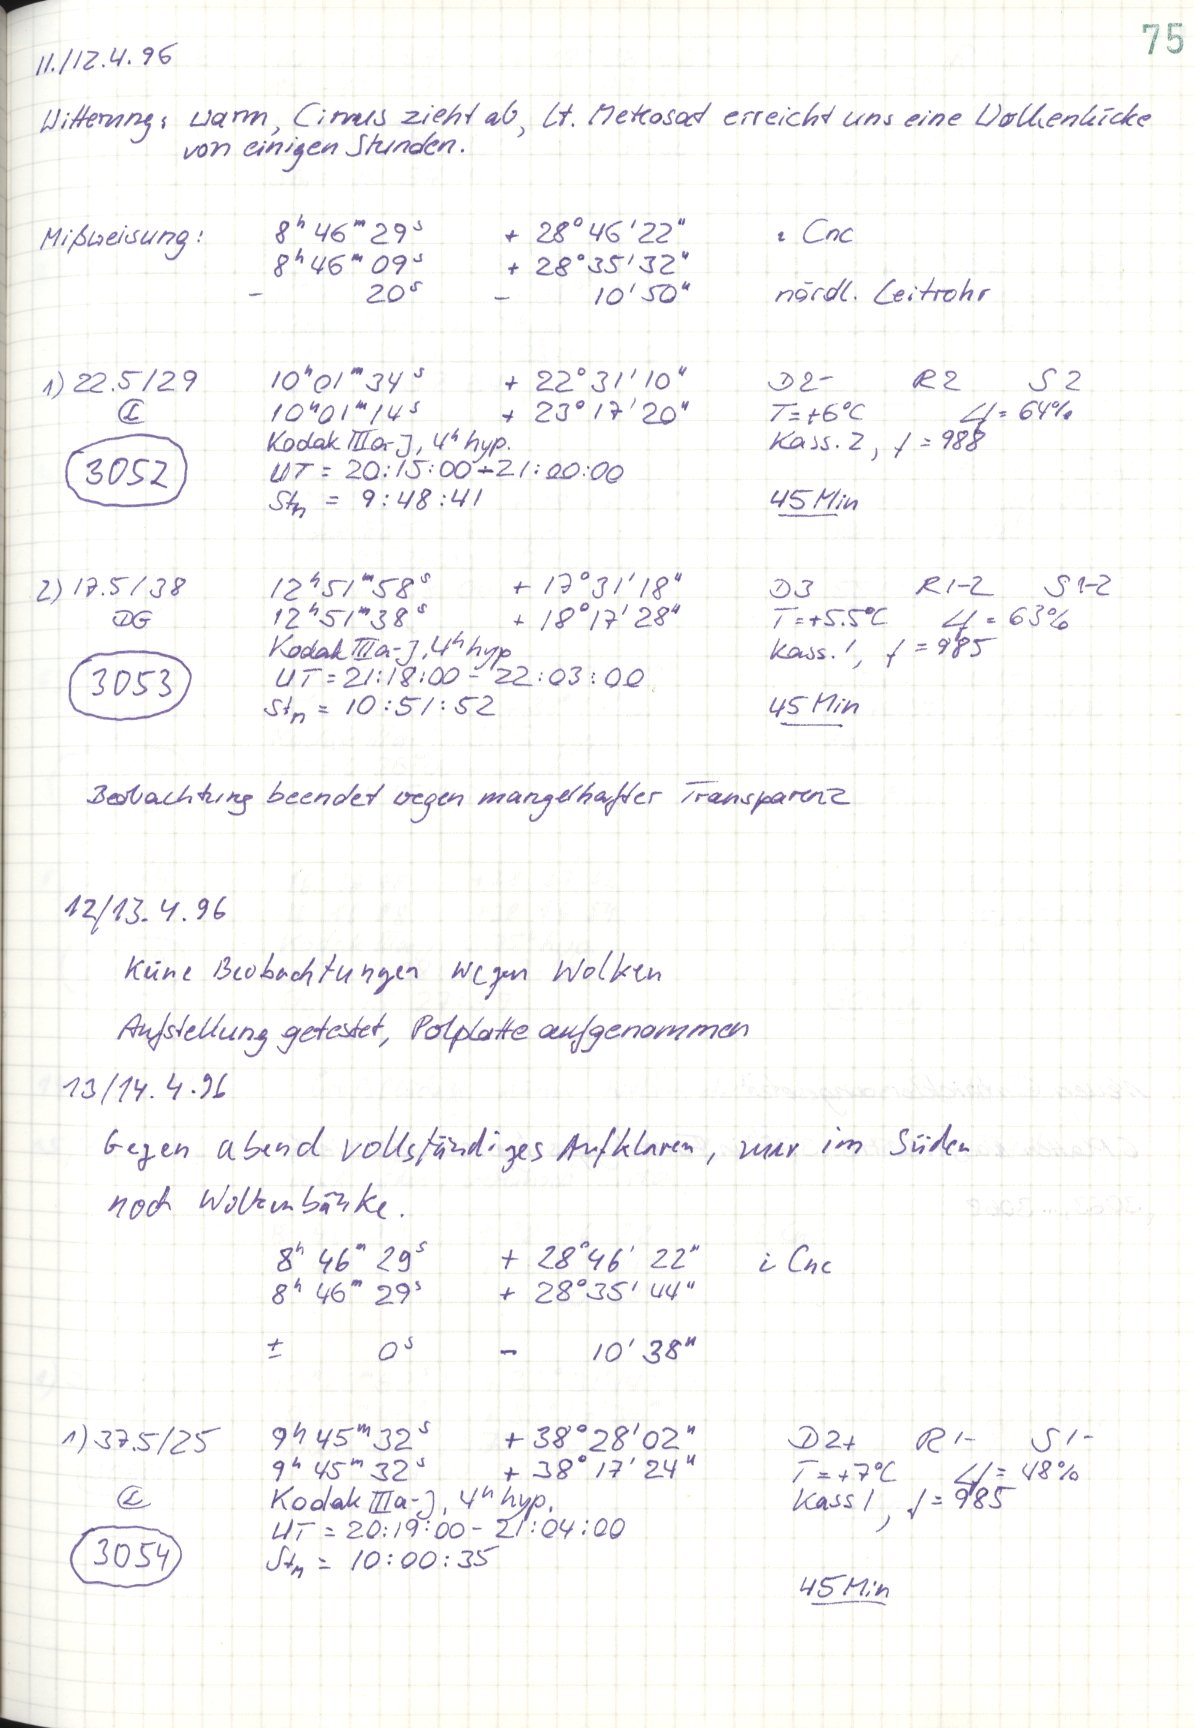 75
11./12.4.96
Witterung: warm, Cirrus zieht ab, lt. Meteosat erreicht uns eine Wolkenlücke
von einigen Stunden.
Mißweisung: 8ʰ 46ᵐ 29ˢ + 28° 46' 22" ι Cnc
8ʰ 46ᵐ 09ˢ + 28° 35' 32"
- 20ˢ - 10' 50" nördl. Leitrohr
1) 22.5/29 10ʰ 01ᵐ 34ˢ + 22° 31' 10" D2- R2 S2
10ʰ 01ᵐ 14ˢ + 23° 17' 20" T=+6°C = 64%
Kodak IIIa-J, 4ʰ hyp. Kass. 2, f = 988
3052 UT = 20:15:00 - 21:00:00
Stₙ = 9:48:41 45 Min
2) 17.5/38 12ʰ 51ᵐ 58ˢ + 17° 31' 18" D3 R1-2 S1-2
DG 12ʰ 51ᵐ 38ˢ + 18° 17' 28" T=+5.5°C = 63%
Kodak IIIa-J, 4ʰ hyp Kass. 1, f = 985
3053 UT = 21:18:00 - 22:03:00
Stₙ = 10:51:52 45 Min
Beobachtung beendet wegen mangelhafter Transparenz
12/13.4.96
Keine Beobachtungen wegen Wolken
Aufstellung getestet, Polplatte aufgenommen
13/14.4.96
Gegen abend vollständiges Aufklaren, nur im Süden
noch Wolkenbänke.
8ʰ 46ᵐ 29ˢ + 28° 46' 22" ι Cnc
8ʰ 46ᵐ 29ˢ + 28° 35' 44"
± 0ˢ - 10' 38"
1) 37.5/25 9ʰ 45ᵐ 32ˢ + 38° 28' 02" D2+ R1- S1-
9ʰ 45ᵐ 32ˢ + 38° 17' 24" T=+7°C = 48%
Kodak IIIa-J, 4ʰ hyp. Kass 1, f = 985
3054 UT = 20:19:00 - 21:04:00
Stₙ = 10:00:35
45 Min